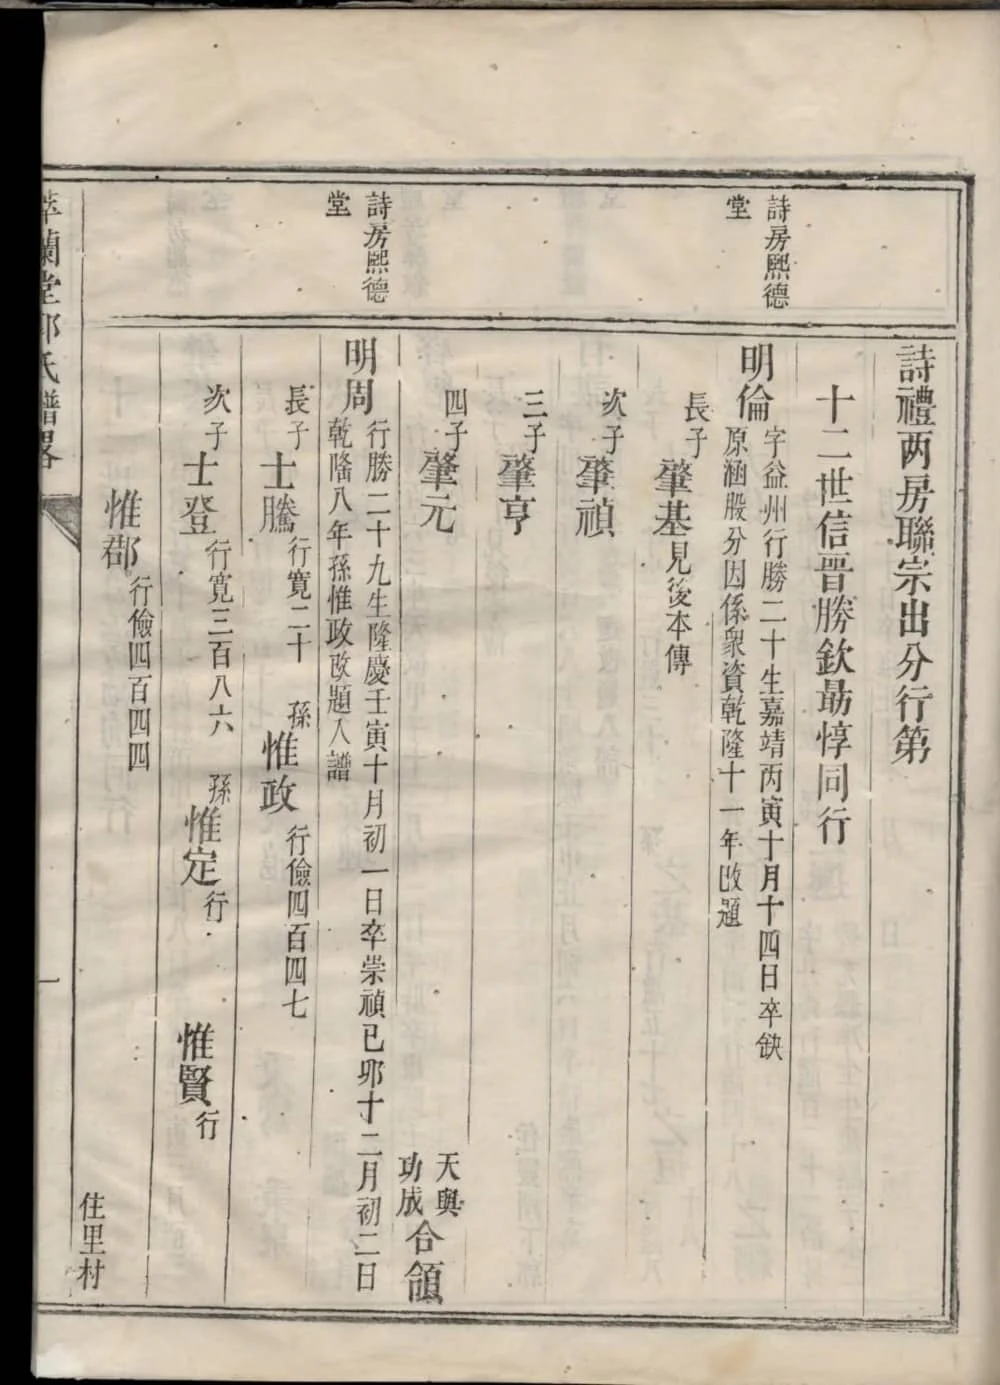 詩禮两房聯宗出分行第
十二世信晋勝欽勗惇同行
詩房熙德
堂
明倫
字益州行勝二十生嘉靖丙寅十月十四日卒缺
原涵股分因係衆資乾隆十一年改題
長子肇基見後本傳
次子肇禎
三子肇亨
四子肇元
天與
功成
合領
詩房熙德
堂
明周
行勝二十九生隆慶壬寅十月初一日卒崇禎已夘十二月初二日
乾隆八年孫惟政改題入譜
長子士騰行寬二十 孫惟政行儉四百四七
次子士登行寬三百八六 孫惟定行 惟賢行
惟郡行儉四百四四
住里村
蘭堂 氏譜畧
一